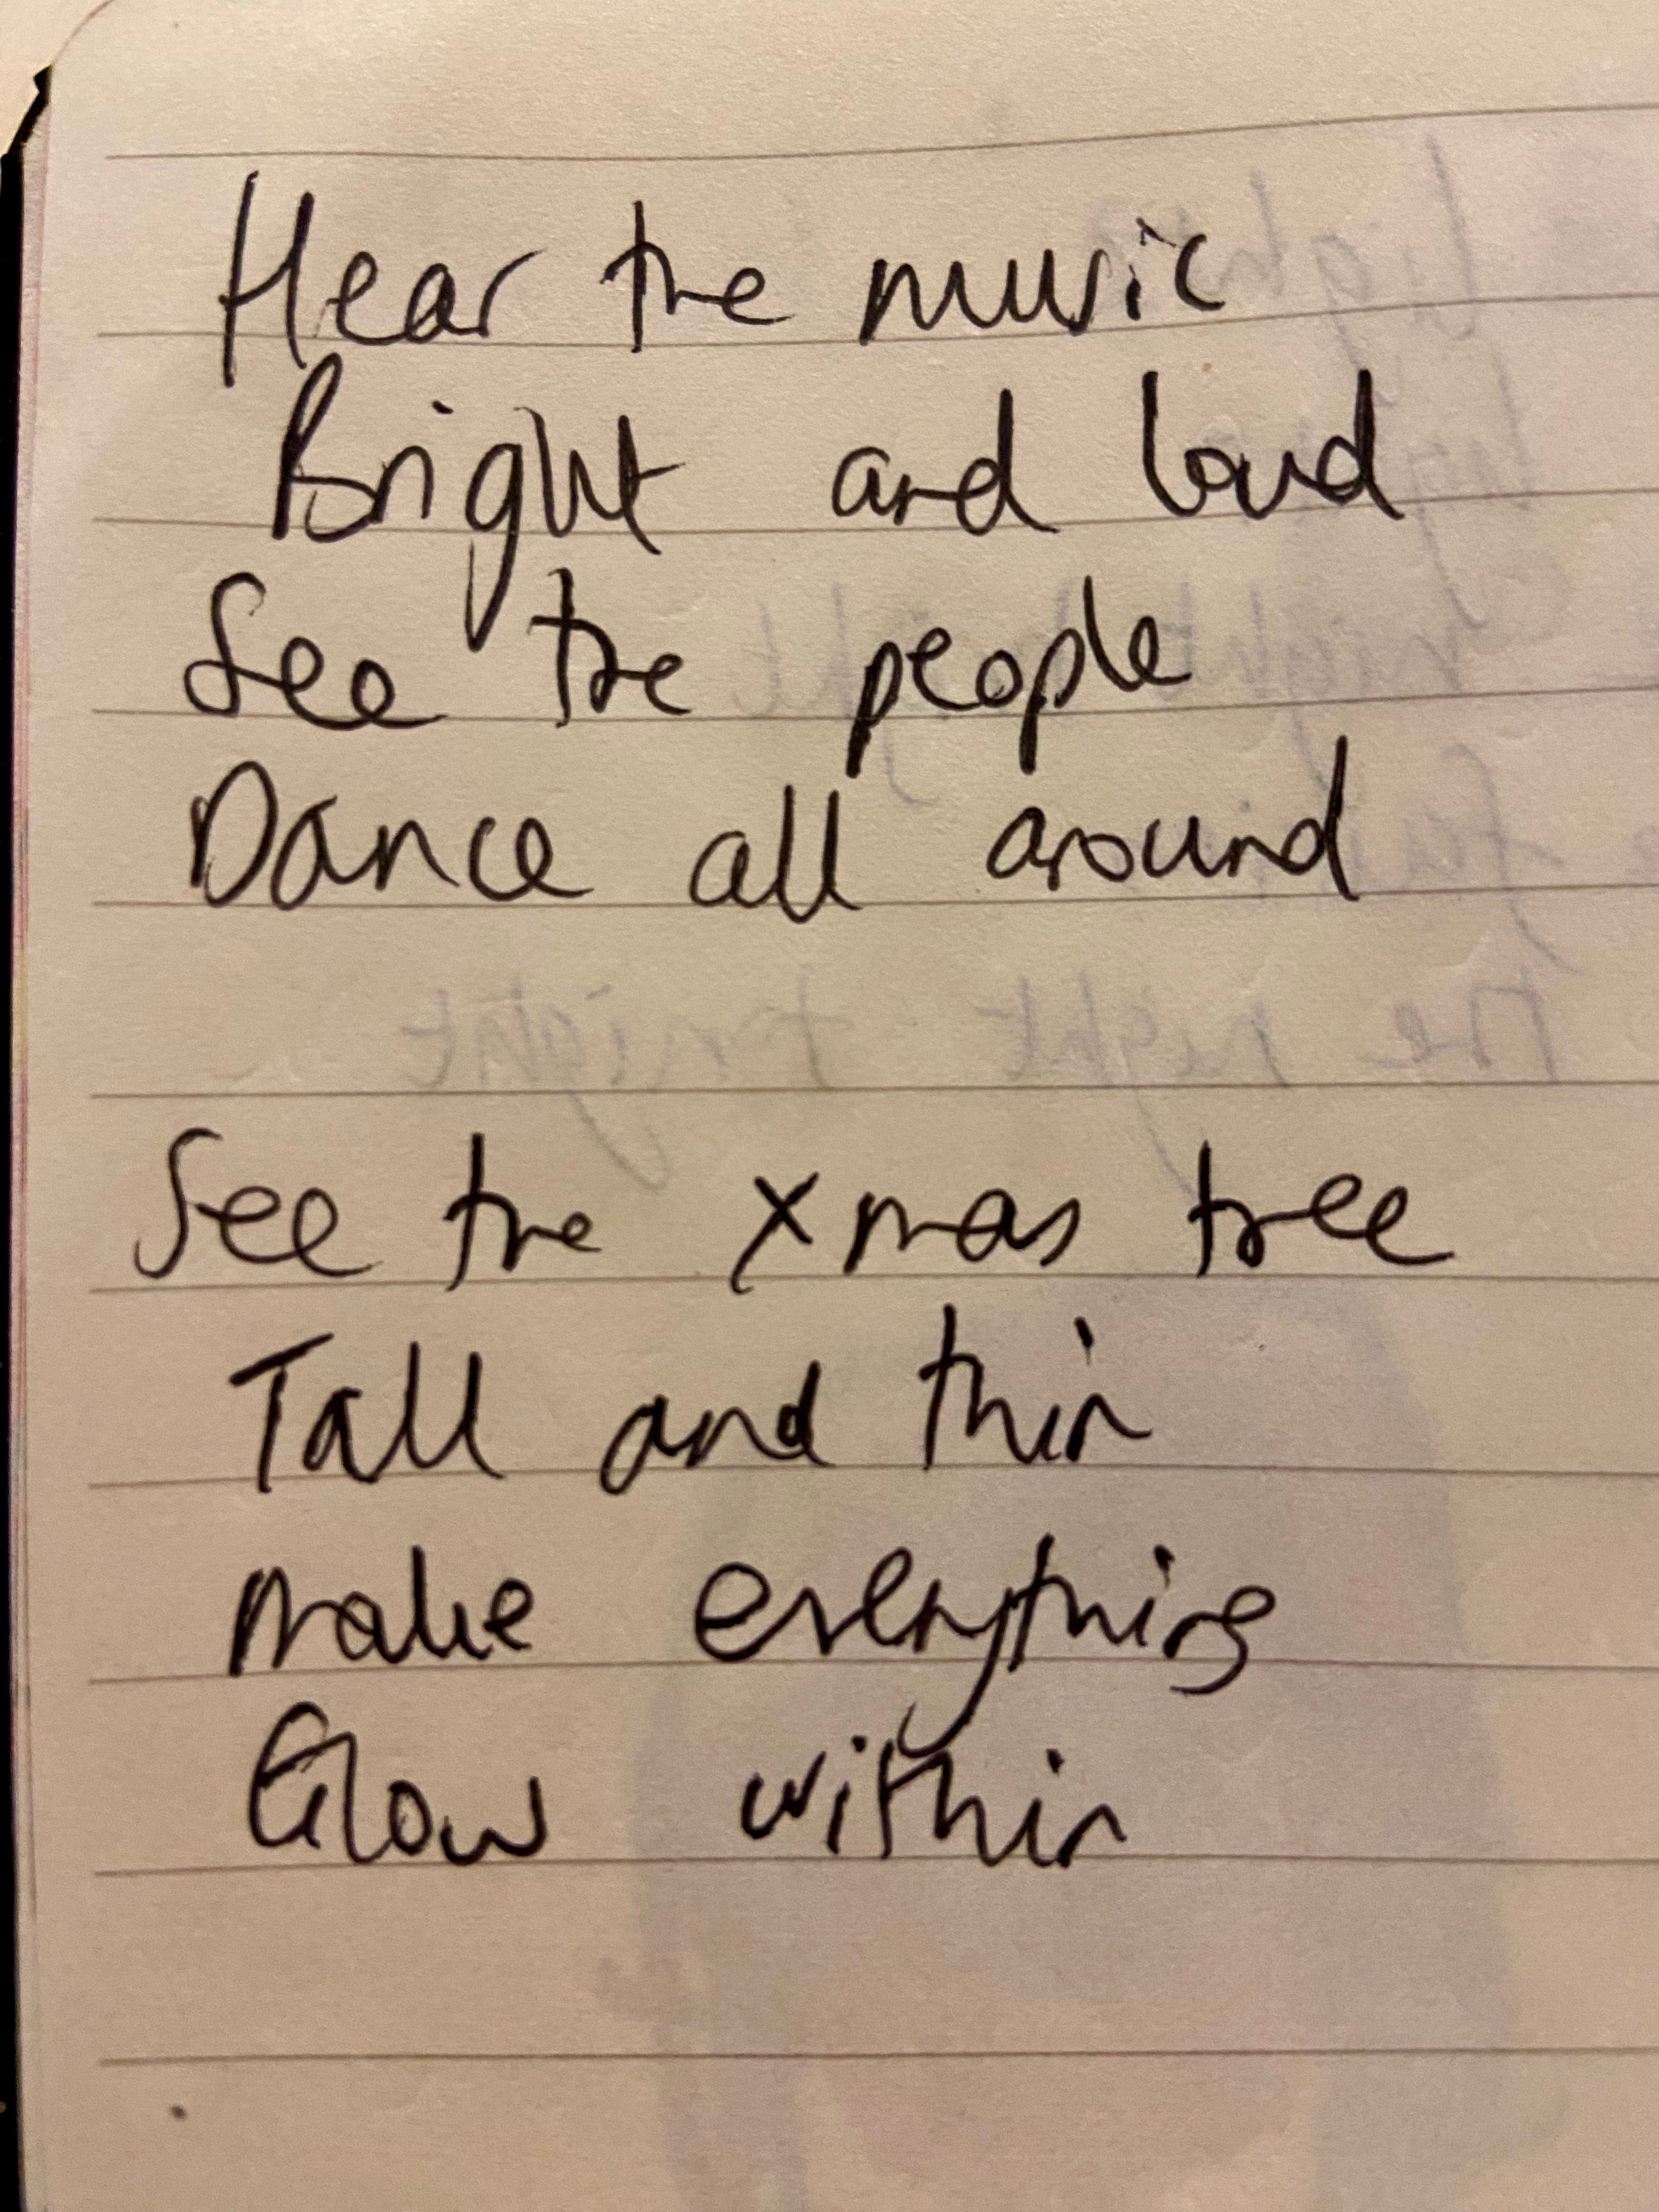 Hear the music
Bright and loud
See the people
Dance all around
See the xmas tree
Tall and thin
make everything
Glow within